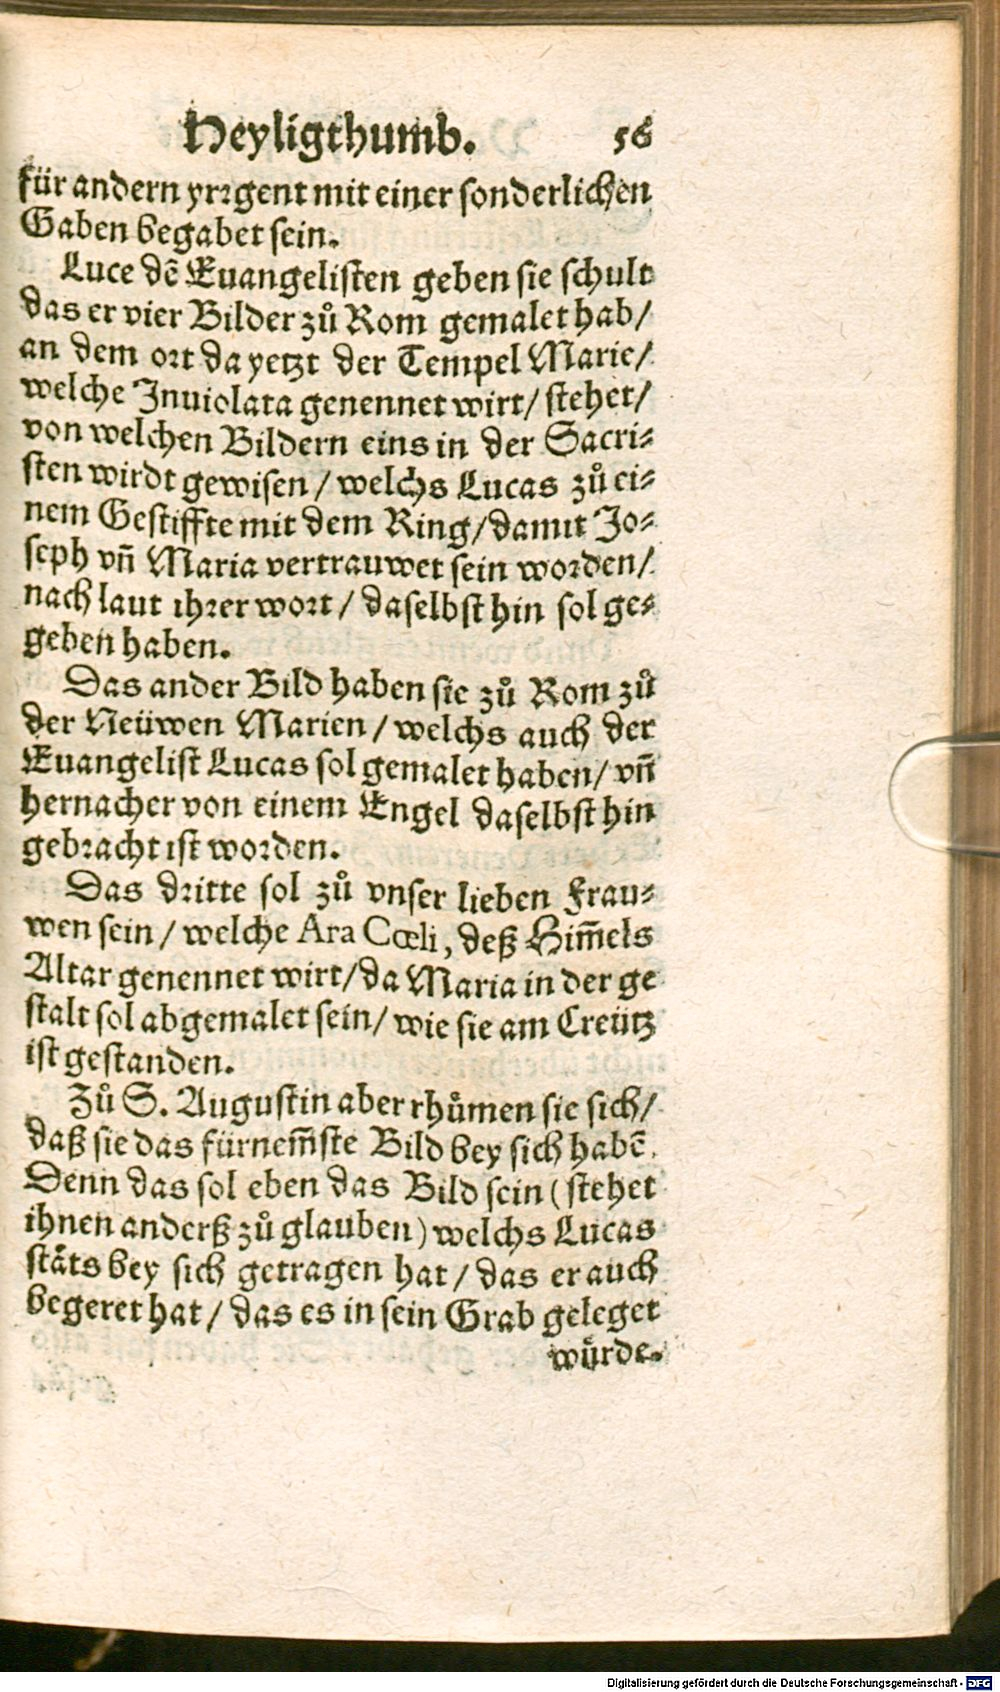 Heyligthumb. 56
für andern yrꝛgent mit einer sonderlichen
Gaben begabet sein.
Luce dē Euangelisten geben sie schult
das er vier Bilder zů Rom gemalet hab/
an dem ort da yetzt der Tempel Marie/
welche Inuiolata genennet wirt/ stehet/
von welchen Bildern eins in der Sacri⸗
sten wirdt gewisen / welchs Lucas zů ei⸗
nem Gestiffte mit dem Ring/damit Jo⸗
seph vñ Maria vertrauwet sein worden/
nach laut ihrer wort / daselbst hin sol ge⸗
geben haben.
Das ander Bild haben sie zů Rom zů
der Neüwen Marien / welchs auch der
Euangelist Lucas sol gemalet haben/ vñ
hernacher von einem Engel daselbst hin
gebracht ist worden.
Das dritte sol zů vnser lieben Frau⸗
wen sein / welche Ara Cœli, deß Him̄els
Altar genennet wirt/da Maria in der ge
stalt sol abgemalet sein/ wie sie am Creütz
ist gestanden.
Zů S. Augustin aber rhůmen sie sich/
daß sie das fürnem̄ste Bild bey sich habē.
Denn das sol eben das Bild sein (stehet
ihnen anderß zů glauben) welchs Lucas
stäts bey sich getragen hat / das er auch
begeret hat / das es in sein Grab geleget
würde.
Digitalisierung gefördert durch die Deutsche Forschungsgemeinschaft - DFG